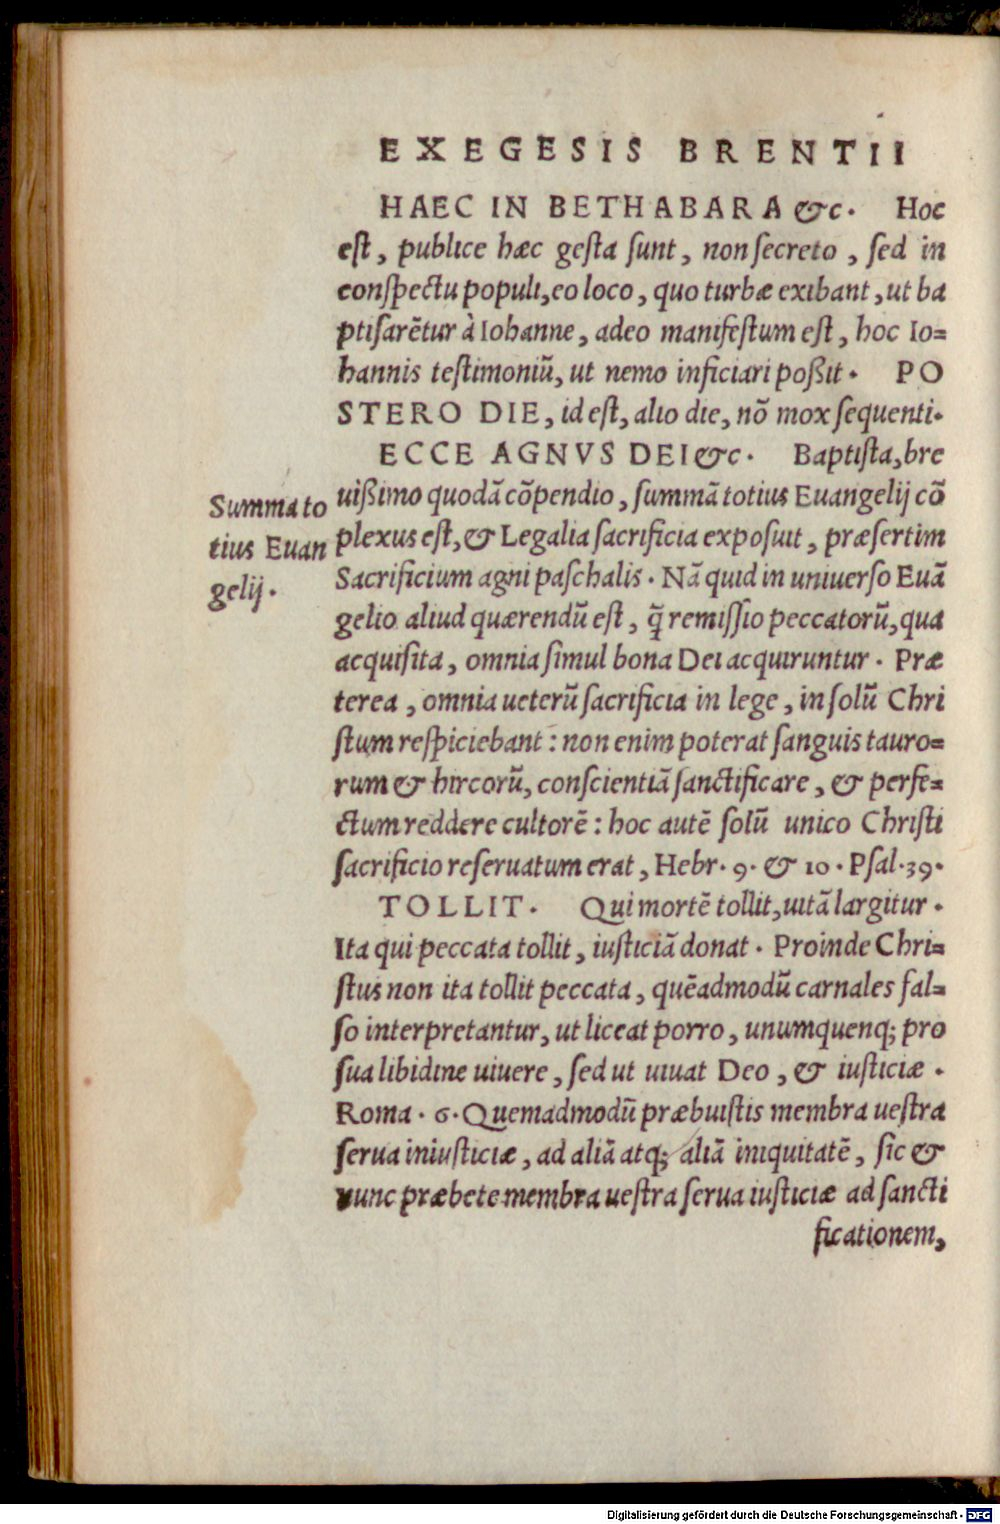 EXEGESIS BRENTII
HAEC IN BETHABARA &c. Hoc
eſt, publice hæc geſta ſunt, non ſecreto, ſed in
conſpectu populi, eo loco, quo turbæ exibant, ut ba
ptiſarẽtur à Iohanne, adeo manifeſtum eſt, hoc Io=
hannis teſtimoniũ, ut nemo inficiari poßit. PO
STERO DIE, id eſt, alio die, nõ mox ſequenti.
ECCE AGNVS DEI &c. Baptiſta, bre
uißimo quodã cõpendio, ſummã totius Euangelij cõ
plexus eſt, & Legalia ſacrificia expoſuit, præſertim
Sacrificium agni paſchalis. Nã quid in uniuerſo Euã
gelio aliud quærendũ eſt, q̃ remiſſio peccatorũ, qua
acquiſita, omnia ſimul bona Dei acquiruntur. Præ
terea, omnia ueterũ ſacrificia in lege, in ſolũ Chri
ſtum reſpiciebant: non enim poterat ſanguis tauro=
rum & hircorũ, conſcientiã ſanctificare, & perfe=
ctum reddere cultorẽ: hoc autẽ ſolũ unico Chriſti
ſacrificio reſeruatum erat, Hebr. 9. & 10. Pſal. 39.
TOLLIT. Qui mortẽ tollit, uitã largitur.
Ita qui peccata tollit, iuſticiã donat. Proinde Chri=
ſtus non ita tollit peccata, quẽadmodũ carnales fal=
ſo interpretantur, ut liceat porro, unumquenq; pro
ſua libidine uiuere, ſed ut uiuat Deo, & iuſticiæ.
Roma. 6. Quemadmodũ præbuiſtis membra ueſtra
ſerua iniuſticiæ, ad aliã atq; aliã iniquitatẽ, ſic &
nunc præbete membra ueſtra ſerua iuſticiæ ad ſancti
ficationem,
Summa to
tius Euan
gelij.
Digitalisierung gefördert durch die Deutsche Forschungsgemeinschaft - DFG